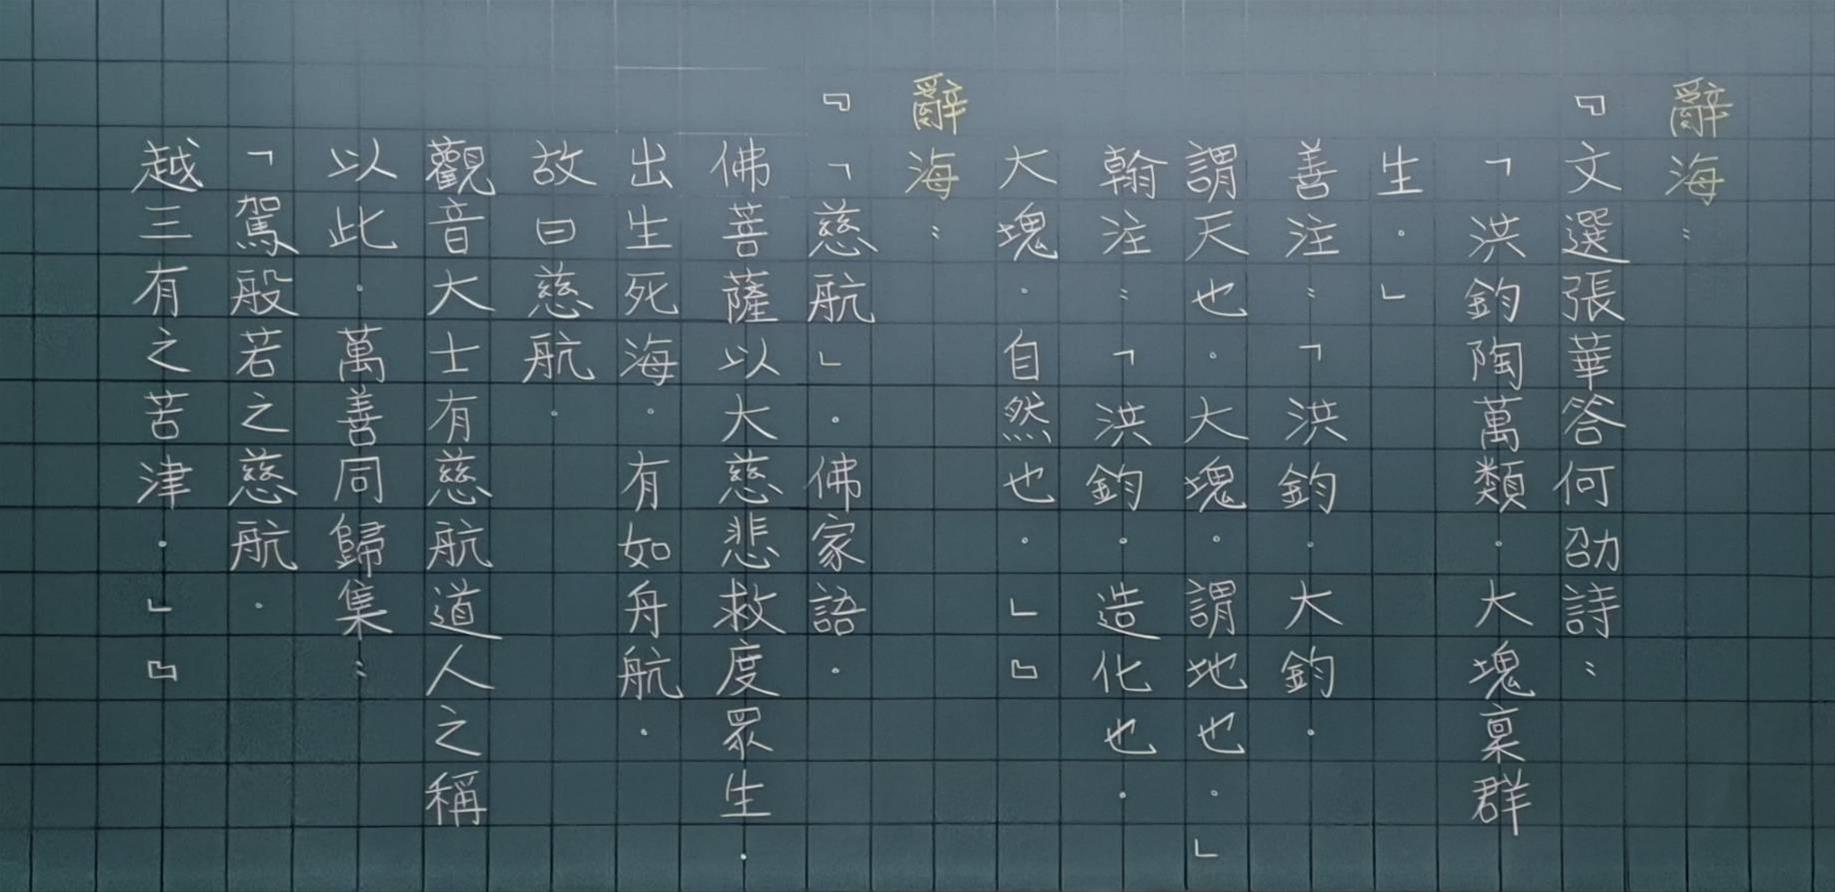 辭海：
『文選張華答何劭詩：
「洪鈞陶萬類．大塊稟群
生．」
善注：「洪鈞．大鈞．
謂天也．大塊．謂地也．」
翰注：「洪鈞．造化也．
大塊．自然也．」』
辭海：
『「慈航」．佛家語．
佛菩薩以大慈悲救度眾生．
出生死海．有如舟航．
故曰慈航．
觀音大士有慈航道人之稱
以此．萬善同歸集：
「駕般若之慈航．
越三有之苦津．」』